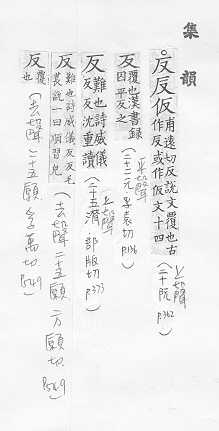 集韻
反反仮 甫遠切說文覆也古
作反或作仮文十四
上聲
(二十阮 P.362)
反 覆也漢書錄
囚平反之
平聲
(二十二元 孚袁切 P.136)
反 難也詩威儀
反反沈重讀
上聲
(二十五潸·部版切 P.373)
反 難也詩威儀反反毛
萇說一曰順習皃
(去聲 二十五願 方願切 P.549)
反 覆
也
(去聲 二十五願 孚萬切 P.549)